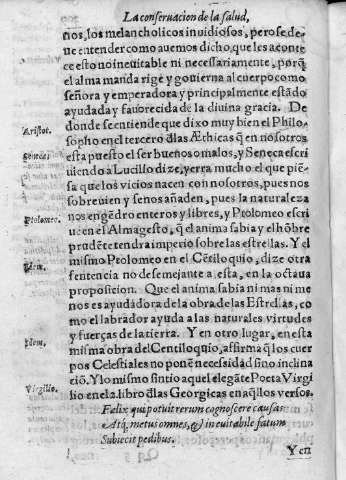 La conseruacion de la salud,
nos, los melancholicos inuidiosos, pero se de-
ue entender como auemos dicho, que les aconte
ce esto no ineuitable ni necessariamente, porq̃
el alma manda rige y gouierna al cuerpo como
señora y emperadora y principalmente estãdo
ayudada y fauorecida de la diuina gracia. De
donde se entiende que dixo muy bien el Philo-
Aristot.
sopho en el tercero dlas Æthicas q̃ en nosotros
Seneca.
esta puesto el ser buenos o malos, y Seneca escri
uiendo a Lucillo dize, yerra mucho el que piẽ-
sa que los vicios nacen con nosotros, pues nos
sobreuien y se nos añaden, pues la naturaleza
Ptolomeo.
nos engẽdro enteros y libres, y Ptolomeo escri
ue en el Almagesto, q̃ el anima sabia y el hõbre
prudẽte tendra imperio sobre las estrellas. Y el
mismo Ptolomeo en el Cẽtiloquio, dize otra
Idem.
sentencia no desemejante a esta, en la octaua
proposicion. Que el anima sabia ni mas ni me
nos es ayudadora de la obra de las Estrellas, co
mo el labrador ayuda a las naturales virtudes
y fuerças de la tierra. Y en otro lugar, en esta
Idem.
misma obra del Centiloquio, affirma q̃ los cuer
pos Celestiales no ponẽ necessidad sino inclina
ciõ. Y lo mismo sintio aquel elegãte Poeta Virgi
Virgilio.
lio en el a. libro dlas Georgicas en aq̃llos versos.
Felix qui potuit rerum cognoscere causas
Atq́; metus omnes, & ineuitabile fatum
Subiecit pedibus.
Y en